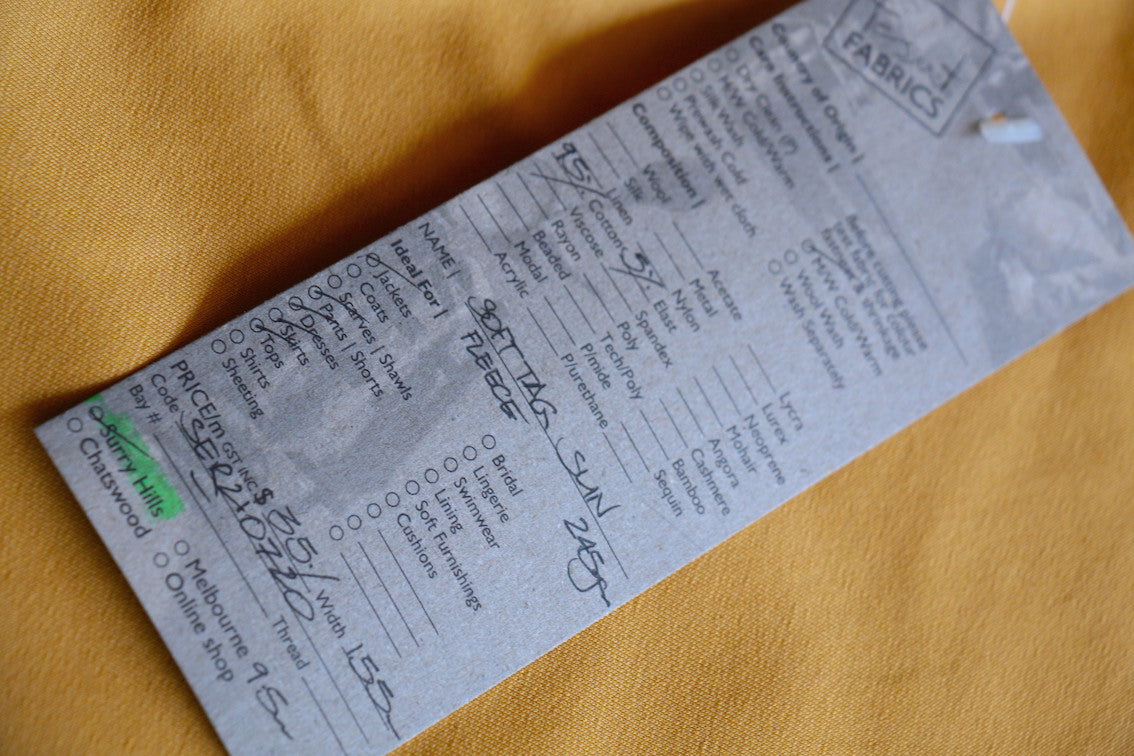 FABRICS
Country of Origin |
Care Instructions |
○ Dry Clean (P)
○ H/W Cold/Warm
○ Silk Wash
○ Prewash Cold
○ Wipe with wet cloth
Before cutting please
test fabric for colour
fastness & shrinkage
○ M/W Cold/Warm
○ Wool Wash
○ Wash Separately
Composition |
Wool
Silk
Linen
95% Cotton
Viscose
Rayon
Beaded
Modal
Acrylic
Acetate
Metal
Nylon
5% Elast
Spandex
Poly
Tech/Poly
P/mide
P/urethane
Lycra
Lurex
Neoprene
Mohair
Angora
Cashmere
Bamboo
Sequin
NAME | SOFT TAG SUN 245g
FLEECE
Ideal For |
○ Jackets
○ Coats
○ Scarves | Shawls
○ Pants | Shorts
○ Dresses
○ Skirts
○ Tops
○ Shirts
○ Sheeting
○ Bridal
○ Lingerie
○ Swimwear
○ Lining
○ Soft Furnishings
○ Cushions
PRICE/m GST INC $ 35./ Width 155
Code SER210720
Bay # Thread
○ Surry Hills
○ Chatswood
○ Melbourne
○ Online shop